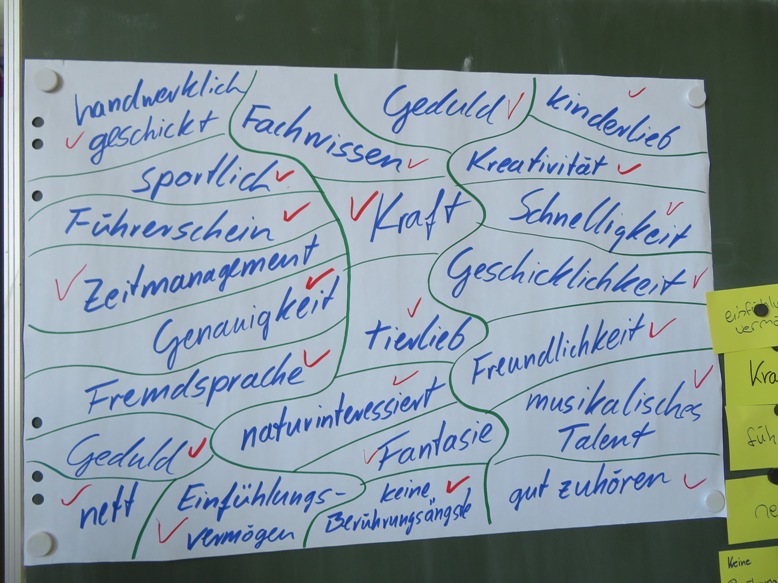 handwerklich
geschickt
Fachwissen
Geduld
kinderlieb
sportlich
Kreativität
Führerschein
Kraft
Schnelligkeit
Zeitmanagement
Geschicklichkeit
Genauigkeit
tierlieb
Freundlichkeit
Fremdsprache
naturinteressiert
musikalisches
Talent
Geduld
Fantasie
nett
Einfühlungs-
vermögen
keine
Berührungsängste
gut zuhören
Kra
füh
ne
Keine